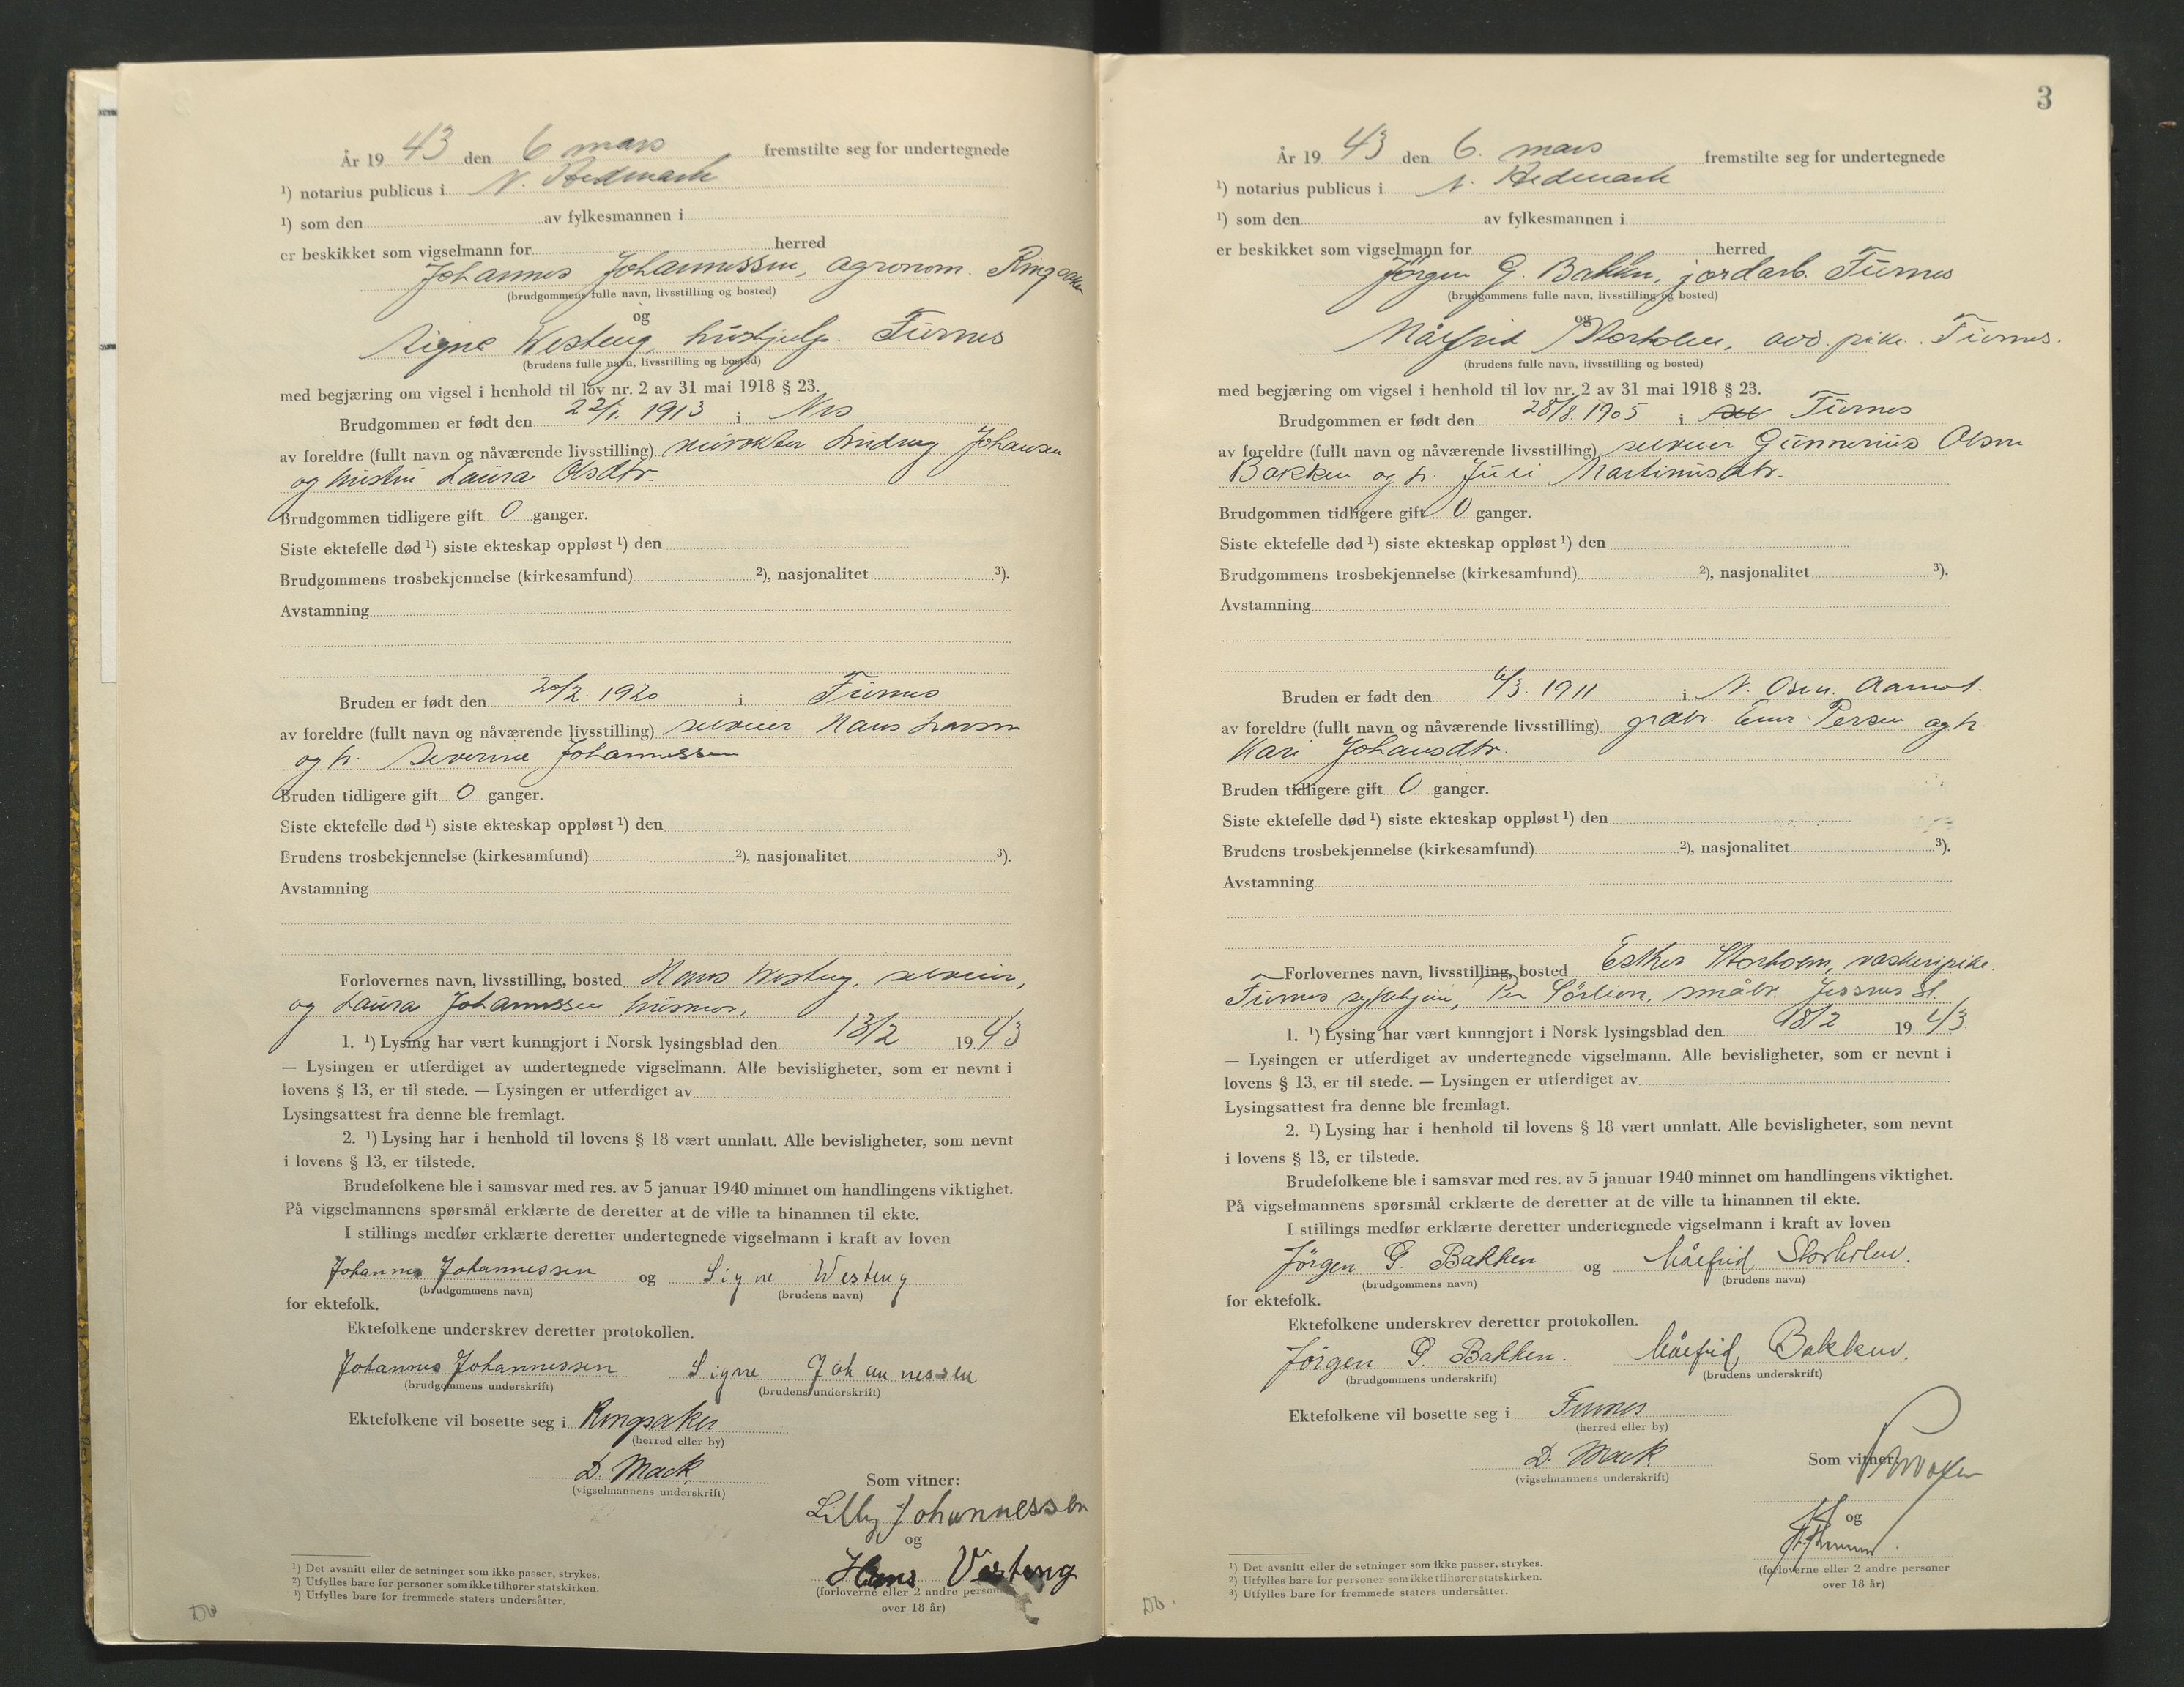 År 19 43 den 6 mars fremstilte seg for undertegnede
¹) notarius publicus i N. Hedmark
¹) som den av fylkesmannen i
er beskikket som vigselmann for herred
Johannes Johannessen, agronom. Ringsaker
(brudgommens fulle navn, livsstilling og bosted)
og
Signe Westeng, hushjelp. Furnes
(brudens fulle navn, livsstilling og bosted)
med begjæring om vigsel i henhold til lov nr. 2 av 31 mai 1918 § 23.
Brudgommen er født den 22/1. 1913 i Nes
av foreldre (fullt navn og nåværende livsstilling) Ludvig Johansen
og hustru Laura Olsdtr.
Brudgommen tidligere gift 0 ganger.
Siste ektefelle død ¹) siste ekteskap oppløst ¹) den
Brudgommens trosbekjennelse (kirkesamfund) ²), nasjonalitet ³).
Avstamning
Bruden er født den 20/2. 1920 i Furnes
av foreldre (fullt navn og nåværende livsstilling) selveier Hans Larsen
og h. Severine Johannessen
Bruden tidligere gift 0 ganger.
Siste ektefelle død ¹) siste ekteskap oppløst ¹) den
Brudens trosbekjennelse (kirkesamfund) ²), nasjonalitet ³).
Avstamning
Forlovernes navn, livsstilling, bosted Hans Westeng, selveier,
og Laura Johannessen husmor,
1. ¹) Lysing har vært kunngjort i Norsk lysingsblad den 13/2 19 43
— Lysingen er utferdiget av undertegnede vigselmann. Alle bevisligheter, som er nevnt i
lovens § 13, er til stede. — Lysingen er utferdiget av
Lysingsattest fra denne ble fremlagt.
2. ¹) Lysing har i henhold til lovens § 18 vært unnlatt. Alle bevisligheter, som nevnt
i lovens § 13, er tilstede.
Brudefolkene ble i samsvar med res. av 5 januar 1940 minnet om handlingens viktighet.
På vigselmannens spørsmål erklærte de deretter at de ville ta hinannen til ekte.
I stillings medfør erklærte deretter undertegnede vigselmann i kraft av loven
Johannes Johannessen og Signe Westeng
(brudgommens navn) (brudens navn)
for ektefolk.
Ektefolkene underskrev deretter protokollen.
Johannes Johannessen Signe Johannessen
(brudgommens underskrift) (brudens underskrift)
Ektefolkene vil bosette seg i Ringsaker
(herred eller by)
D. Mack
(vigselmannens underskrift)
Som vitner:
Lilly Johannessen
og
Hans Westeng
(forloverne eller 2 andre personer
over 18 år)
¹) Det avsnitt eller de setninger som ikke passer, strykes.
²) Utfylles bare for personer som ikke tilhører statskirken.
³) Utfylles bare for fremmede staters undersåtter.
3
År 19 43 den 6. mars fremstilte seg for undertegnede
¹) notarius publicus i N. Hedmark
¹) som den av fylkesmannen i
er beskikket som vigselmann for herred
Jørgen G. Bakken, jordarb. Furnes
(brudgommens fulle navn, livsstilling og bosted)
og
Målfrid Storholm, avd. pike. Furnes.
(brudens fulle navn, livsstilling og bosted)
med begjæring om vigsel i henhold til lov nr. 2 av 31 mai 1918 § 23.
Brudgommen er født den 28/8. 1905 i Furnes
av foreldre (fullt navn og nåværende livsstilling) selveier Gunnerius Olsen
Bakken og h. Juli Martinusdtr.
Brudgommen tidligere gift 0 ganger.
Siste ektefelle død ¹) siste ekteskap oppløst ¹) den
Brudgommens trosbekjennelse (kirkesamfund) ²), nasjonalitet ³).
Avstamning
Bruden er født den 6/3. 1911 i N. Osen. Aamot.
av foreldre (fullt navn og nåværende livsstilling) grdbr. Persen og h.
Kari Johansdtr.
Bruden tidligere gift 0 ganger.
Siste ektefelle død ¹) siste ekteskap oppløst ¹) den
Brudens trosbekjennelse (kirkesamfund) ²), nasjonalitet ³).
Avstamning
Forlovernes navn, livsstilling, bosted Esther Storholm, vaskeripike.
Furnes sykehjem, Per Sörlien, småbr. Jessnes st.
1. ¹) Lysing har vært kunngjort i Norsk lysingsblad den 18/2 19 43.
— Lysingen er utferdiget av undertegnede vigselmann. Alle bevisligheter, som er nevnt i
lovens § 13, er til stede. — Lysingen er utferdiget av
Lysingsattest fra denne ble fremlagt.
2. ¹) Lysing har i henhold til lovens § 18 vært unnlatt. Alle bevisligheter, som nevnt
i lovens § 13, er tilstede.
Brudefolkene ble i samsvar med res. av 5 januar 1940 minnet om handlingens viktighet.
På vigselmannens spørsmål erklærte de deretter at de ville ta hinannen til ekte.
I stillings medfør erklærte deretter undertegnede vigselmann i kraft av loven
Jörgen G. Bakken og Målfrid Storholm.
(brudgommens navn) (brudens navn)
for ektefolk.
Ektefolkene underskrev deretter protokollen.
Jörgen G. Bakken. Målfrid Bakken.
(brudgommens underskrift) (brudens underskrift)
Ektefolkene vil bosette seg i Furnes
(herred eller by)
D. Mack
(vigselmannens underskrift)
Som vitner:
og
(forloverne eller 2 andre personer
over 18 år)
¹) Det avsnitt eller de setninger som ikke passer, strykes.
²) Utfylles bare for personer som ikke tilhører statskirken.
³) Utfylles bare for fremmede staters undersåtter.